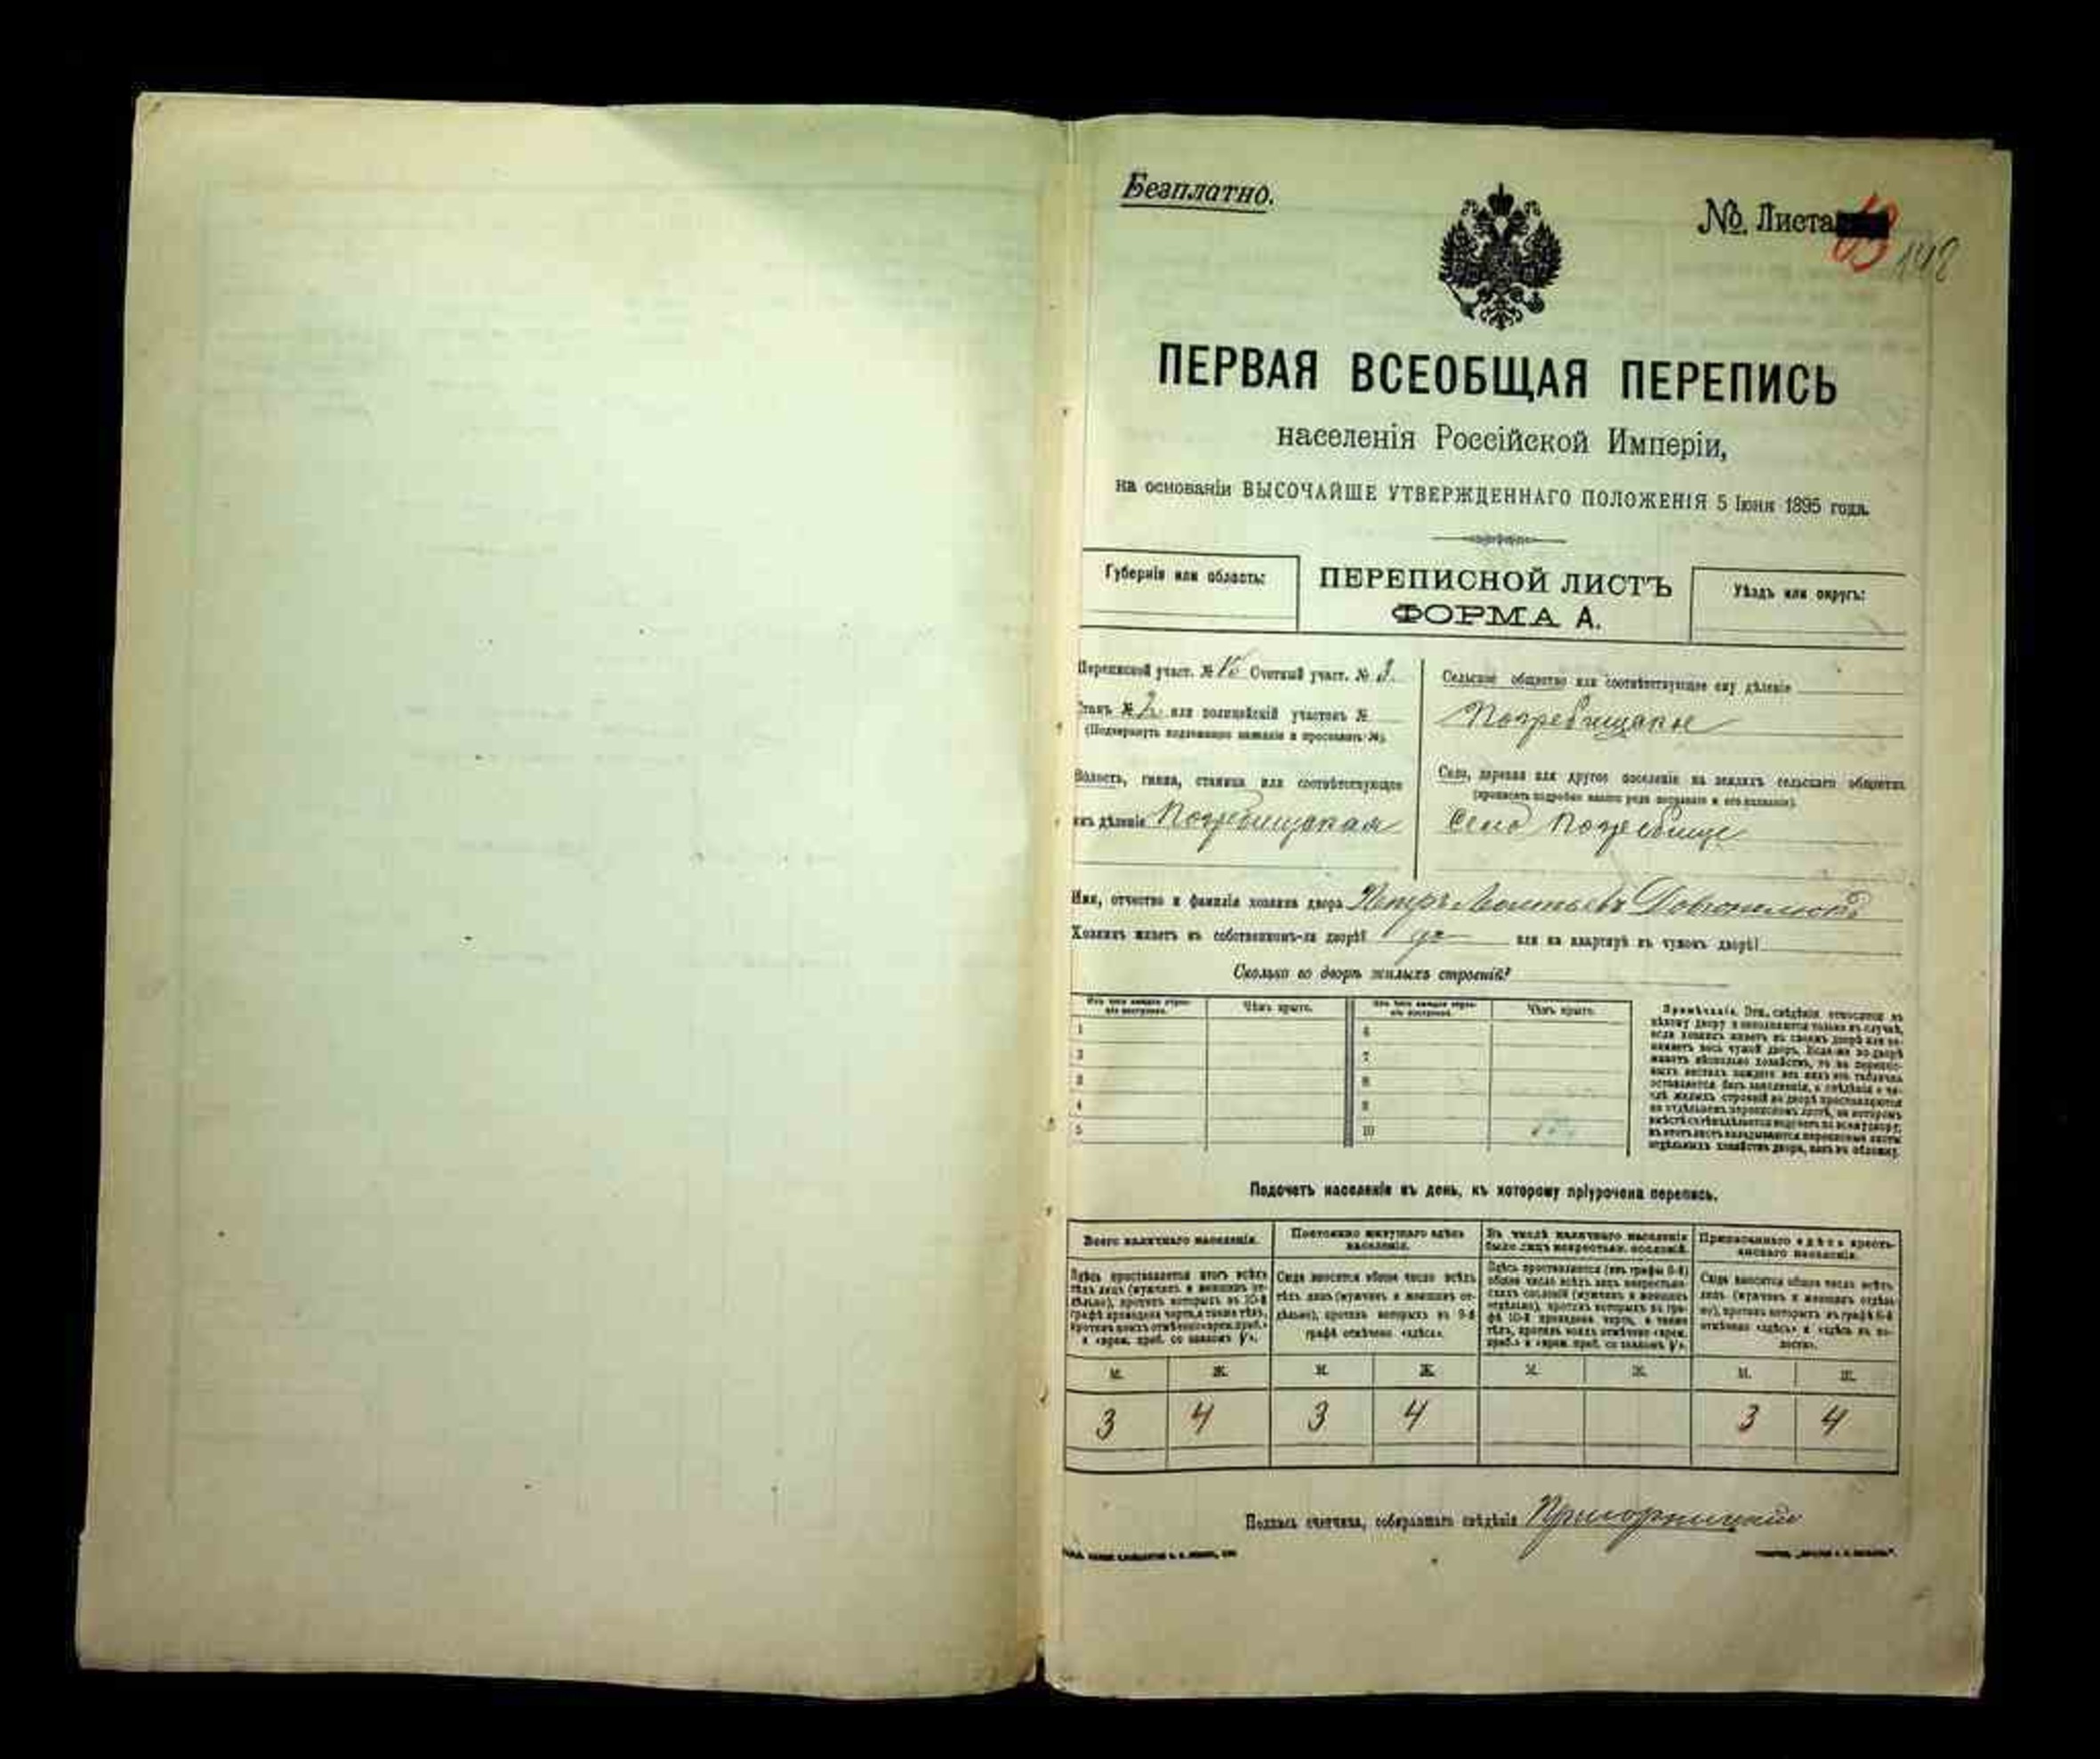 Безплатно.
№ Листа 63
142
ПЕРВАЯ ВСЕОБЩАЯ ПЕРЕПИСЬ
населенія Россійской Имперіи,
на основаніи ВЫСОЧАЙШЕ УТВЕРЖДЕННАГО ПОЛОЖЕНІЯ 5 Іюня 1895 года.
Губернія или область:
ПЕРЕПИСНОЙ ЛИСТЪ
ФОРМА А.
Уѣздъ или округъ:
Переписной участ. № Счетный участ. № 3.
Станъ № 2 или полицейскій участокъ №
(Подчеркнуть надлежащее названіе и проставить №).
Волость, гмина, станица или соотвѣтствующее
имъ дѣленіе Погребищская
Сельское общество или соотвѣтствующее ему дѣленіе
Погребищское
Село, деревня или другое поселеніе на земляхъ сельскаго общества
(прописать подробно какого рода поселеніе и его названіе).
Село Погребище
Имя, отчество и фамилія хозяина двора Петръ Леонтьевъ
Хозяинъ живетъ въ собственномъ-ли дворѣ? да или на квартирѣ въ чужомъ дворѣ?
Сколько во дворѣ жилыхъ строеній?
Изъ чего каждое строеніе построено.
Чѣмъ крыто.
Изъ чего каждое строеніе построено.
Чѣмъ крыто.
1
2
3
4
5
6
7
8
9
10
Примѣчаніе. Эти свѣдѣнія относятся къ
цѣлому двору и заполняются только въ случаѣ,
если хозяинъ живетъ въ своемъ дворѣ или за-
нимаетъ весь чужой дворъ. Если же во дворѣ
живетъ нѣсколько хозяйствъ, то на перепис-
ныхъ листахъ каждаго изъ нихъ эта табличка
оставляется безъ заполненія, а свѣдѣнія о чи-
слѣ жилыхъ строеній во дворѣ проставляются
на отдѣльномъ переписномъ листѣ, на которомъ
вмѣстѣ съ тѣмъ дѣлается подсчетъ по всему двору;
въ этотъ листъ вкладываются переписные листы
отдѣльныхъ хозяйствъ двора, какъ въ обложку.
Подсчетъ населенія въ день, къ которому пріурочена перепись.
Всего наличнаго населенія.
Здѣсь проставляется итогъ всѣхъ
тѣхъ лицъ (мужчинъ и женщинъ от-
дѣльно), противъ которыхъ въ 10-й
графѣ проведена черта, а также тѣхъ,
противъ коихъ отмѣчено «врем. преб.»
и «врем. преб. со знакомъ V».
Постоянно живущаго здѣсь
населенія.
Сюда вносится общее число всѣхъ
тѣхъ лицъ (мужчинъ и женщинъ от-
дѣльно), противъ которыхъ въ 9-й
графѣ отмѣчено «здѣсь».
Въ числѣ наличнаго населенія
было лицъ некрестьян. сословій.
Здѣсь проставляется (изъ графы 5-й)
общее число всѣхъ лицъ некрестьян-
скихъ сословій (мужчинъ и женщинъ
отдѣльно), противъ которыхъ въ гра-
фѣ 10-й проведена черта, а также
тѣхъ, противъ коихъ отмѣчено «врем.
преб.» и «врем. преб. со знакомъ V».
Приписаннаго здѣсь кресть-
янскаго населенія.
Сюда вносится общее число всѣхъ
лицъ (мужчинъ и женщинъ отдѣль-
но), противъ которыхъ въ графѣ 8-й
отмѣчено «здѣсь» и «здѣсь въ во-
лости».
М. Ж. М. Ж. М. Ж. М. Ж.
3 4 3 4 3 4
Подпись счетчика, собиравшаго свѣдѣнія